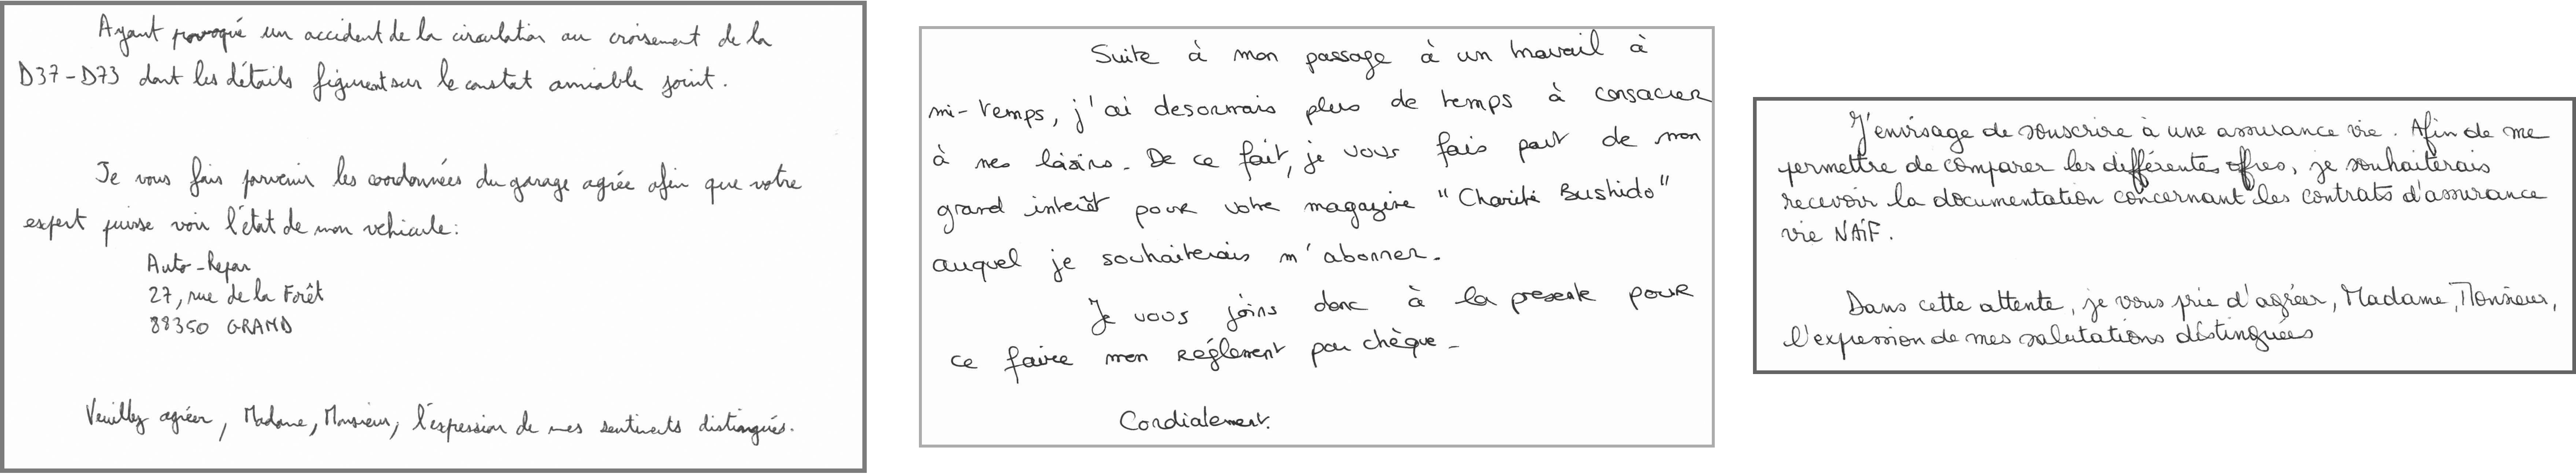 Ayant provoqué un accident de la circulation au croisement de la
D37-D73 dont les détails figurent sur le constat amiable joint.
Je vous fais parvenir les coordonnées du garage agrée afin que votre
expert puisse voir l'état de mon vehicule:
Auto-Repar
27, rue de la Forêt
88350 GRAND
Veuillez agréer, Madame, Monsieur, l'expression de mes sentiments distingués.
Suite à mon passage à un travail à
mi-temps, j'ai desormais plus de temps à consacrer
à mes loisirs. De ce fait, je vous fais part de mon
grand interêt pour votre magazine "Charité Bushido"
auquel je souhaiterais m'abonner.
Je vous joins donc à la presente pour
ce faire mon réglement par chèque.
Cordialement.
J'envisage de souscrire à une assurance vie. Afin de me
permettre de comparer les différentes offres, je souhaiterais
recevoir la documentation concernant les contrats d'assurance
vie NAÏF.
Dans cette attente, je vous prie d'agréer, Madame, Monsieur,
l'expression de mes salutations distinguées